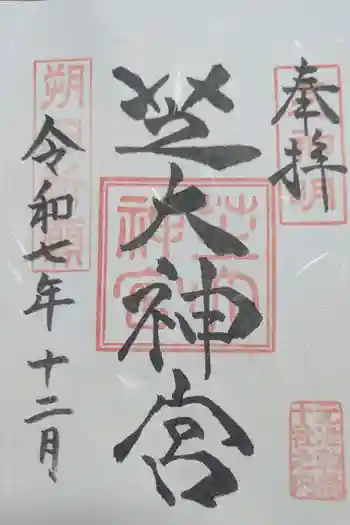 奉拝
芝大神宮
令和七年十二月
朔日祈願
芝大神宮